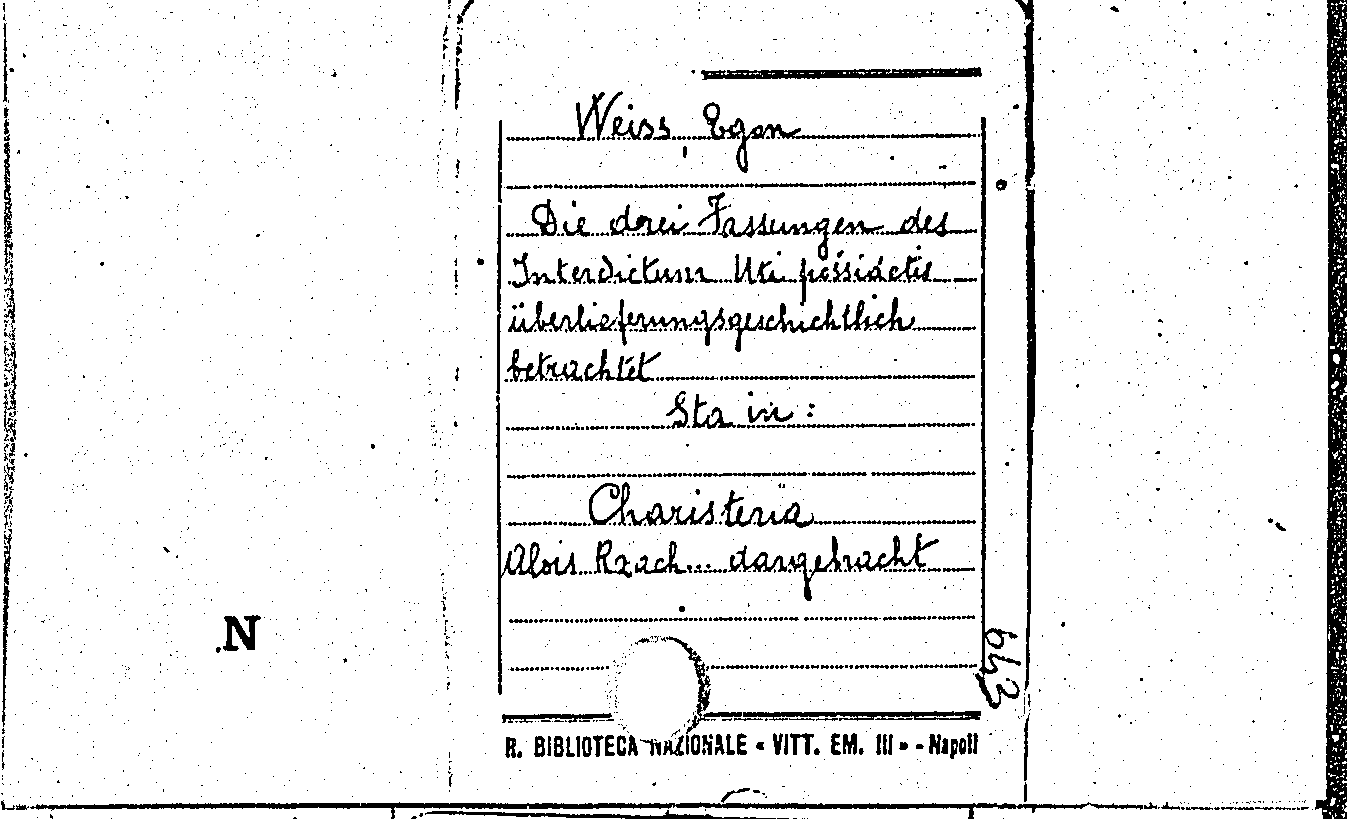 Weiss, Egon
Die drei Fassungen des
Interdictum Uti possidetis
überlieferungsgeschichtlich
betrachtet
Sta in:
Charisteria
Alois Rzach... dargebracht
N
R. BIBLIOTECA NAZIONALE « VITT. EM. III » - Napoli